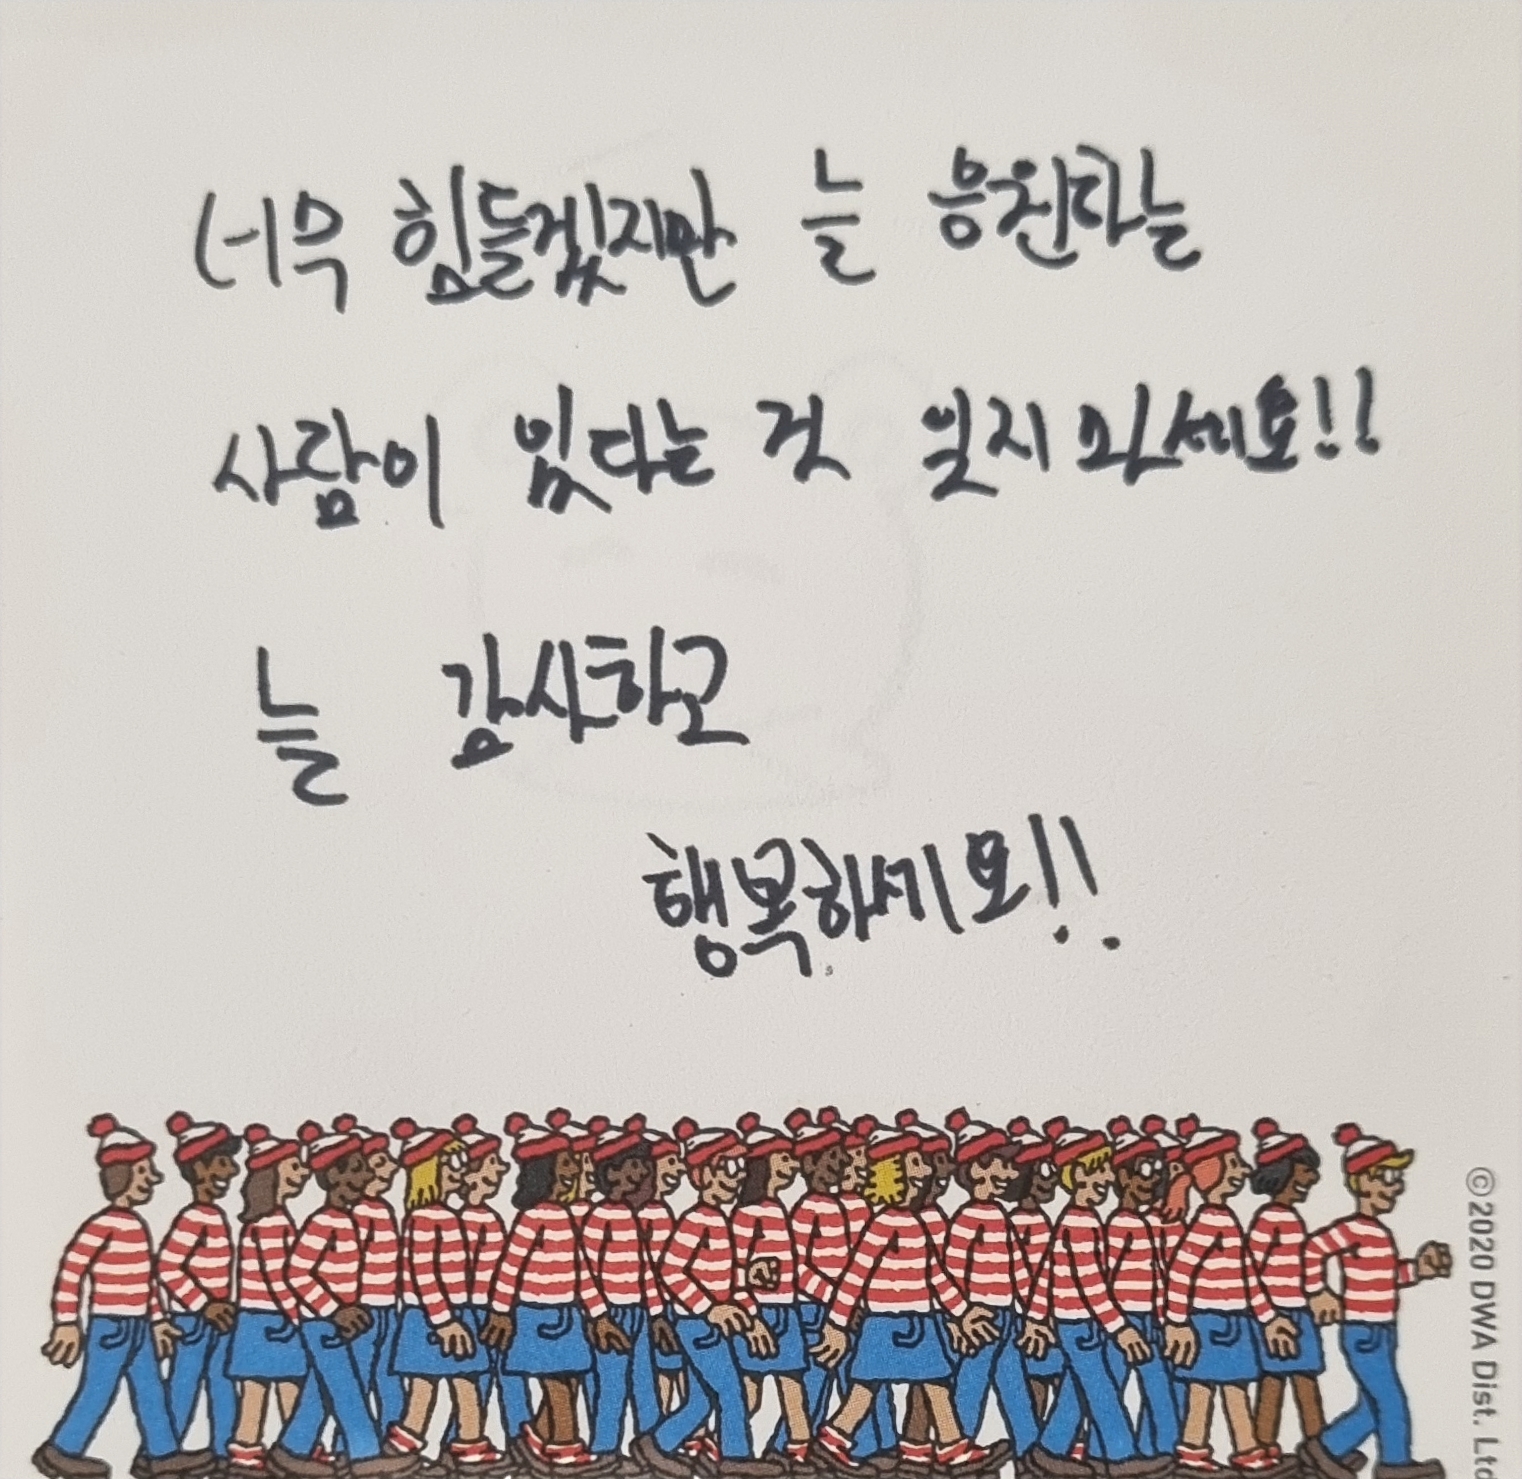 너무 힘들겠지만 늘 응원하는
사람이 있다는 것 잊지 마세요!!
늘 감사하고
행복하세요!!
©2020 DWA Dist. Ltd